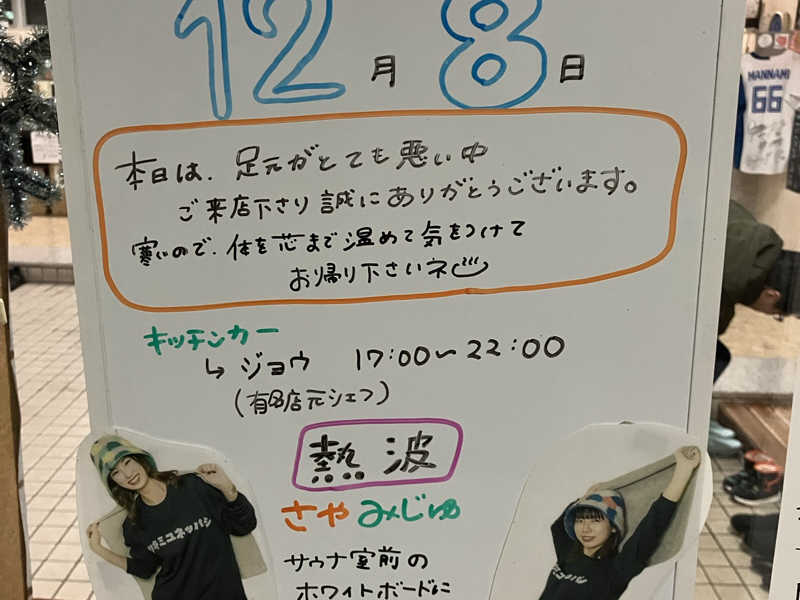 12月8日
本日は、足元がとても悪い中
ご来店下さり誠にありがとうございます。
寒いので、体を芯まで温めて気をつけて
お帰り下さいネ
キッチンカー
↳ジョウ 17:00〜22:00
(有名店元シェフ)
熱波
さや みじゅ
サウナ室前の
ホワイトボードに
MANNAMI
66